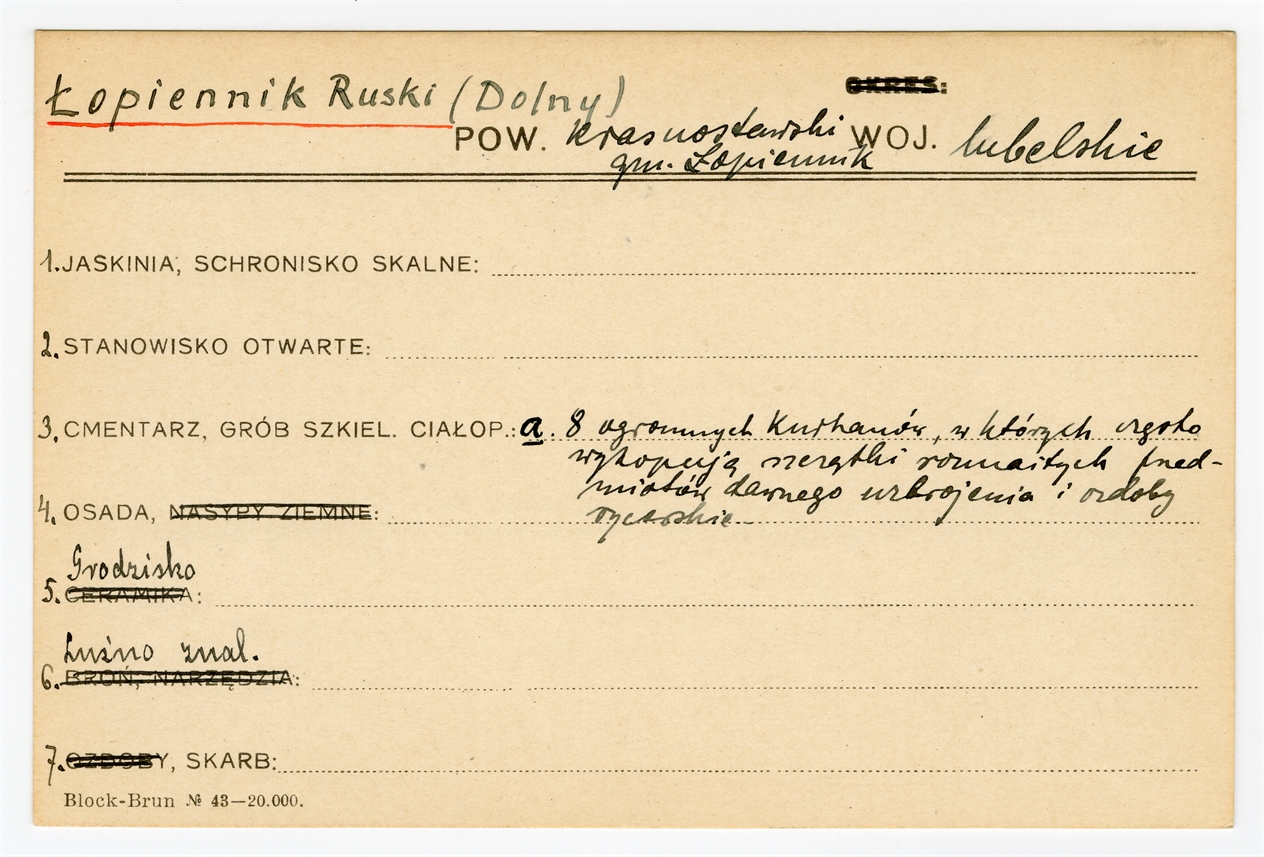 Łopiennik Ruski (Dolny)
OKRES:
POW. krasnostawski WOJ. lubelskie
gm. Łopiennik
1. JASKINIA, SCHRONISKO SKALNE:
2. STANOWISKO OTWARTE:
3. CMENTARZ, GRÓB SZKIEL. CIAŁOP.: a. 8 ogromnych Kurhanów, w których często
wykopują szczątki rozmaitych przed-
miotów dawnego uzbrojenia i ozdoby
4. OSADA, NASYPY ZIEMNE:
rycerskie
Grodzisko
5. CERAMIKA:
Luźno znal.
6. BROŃ, NARZĘDZIA:
7. OZDOBY, SKARB:
Block-Brun № 43—20.000.